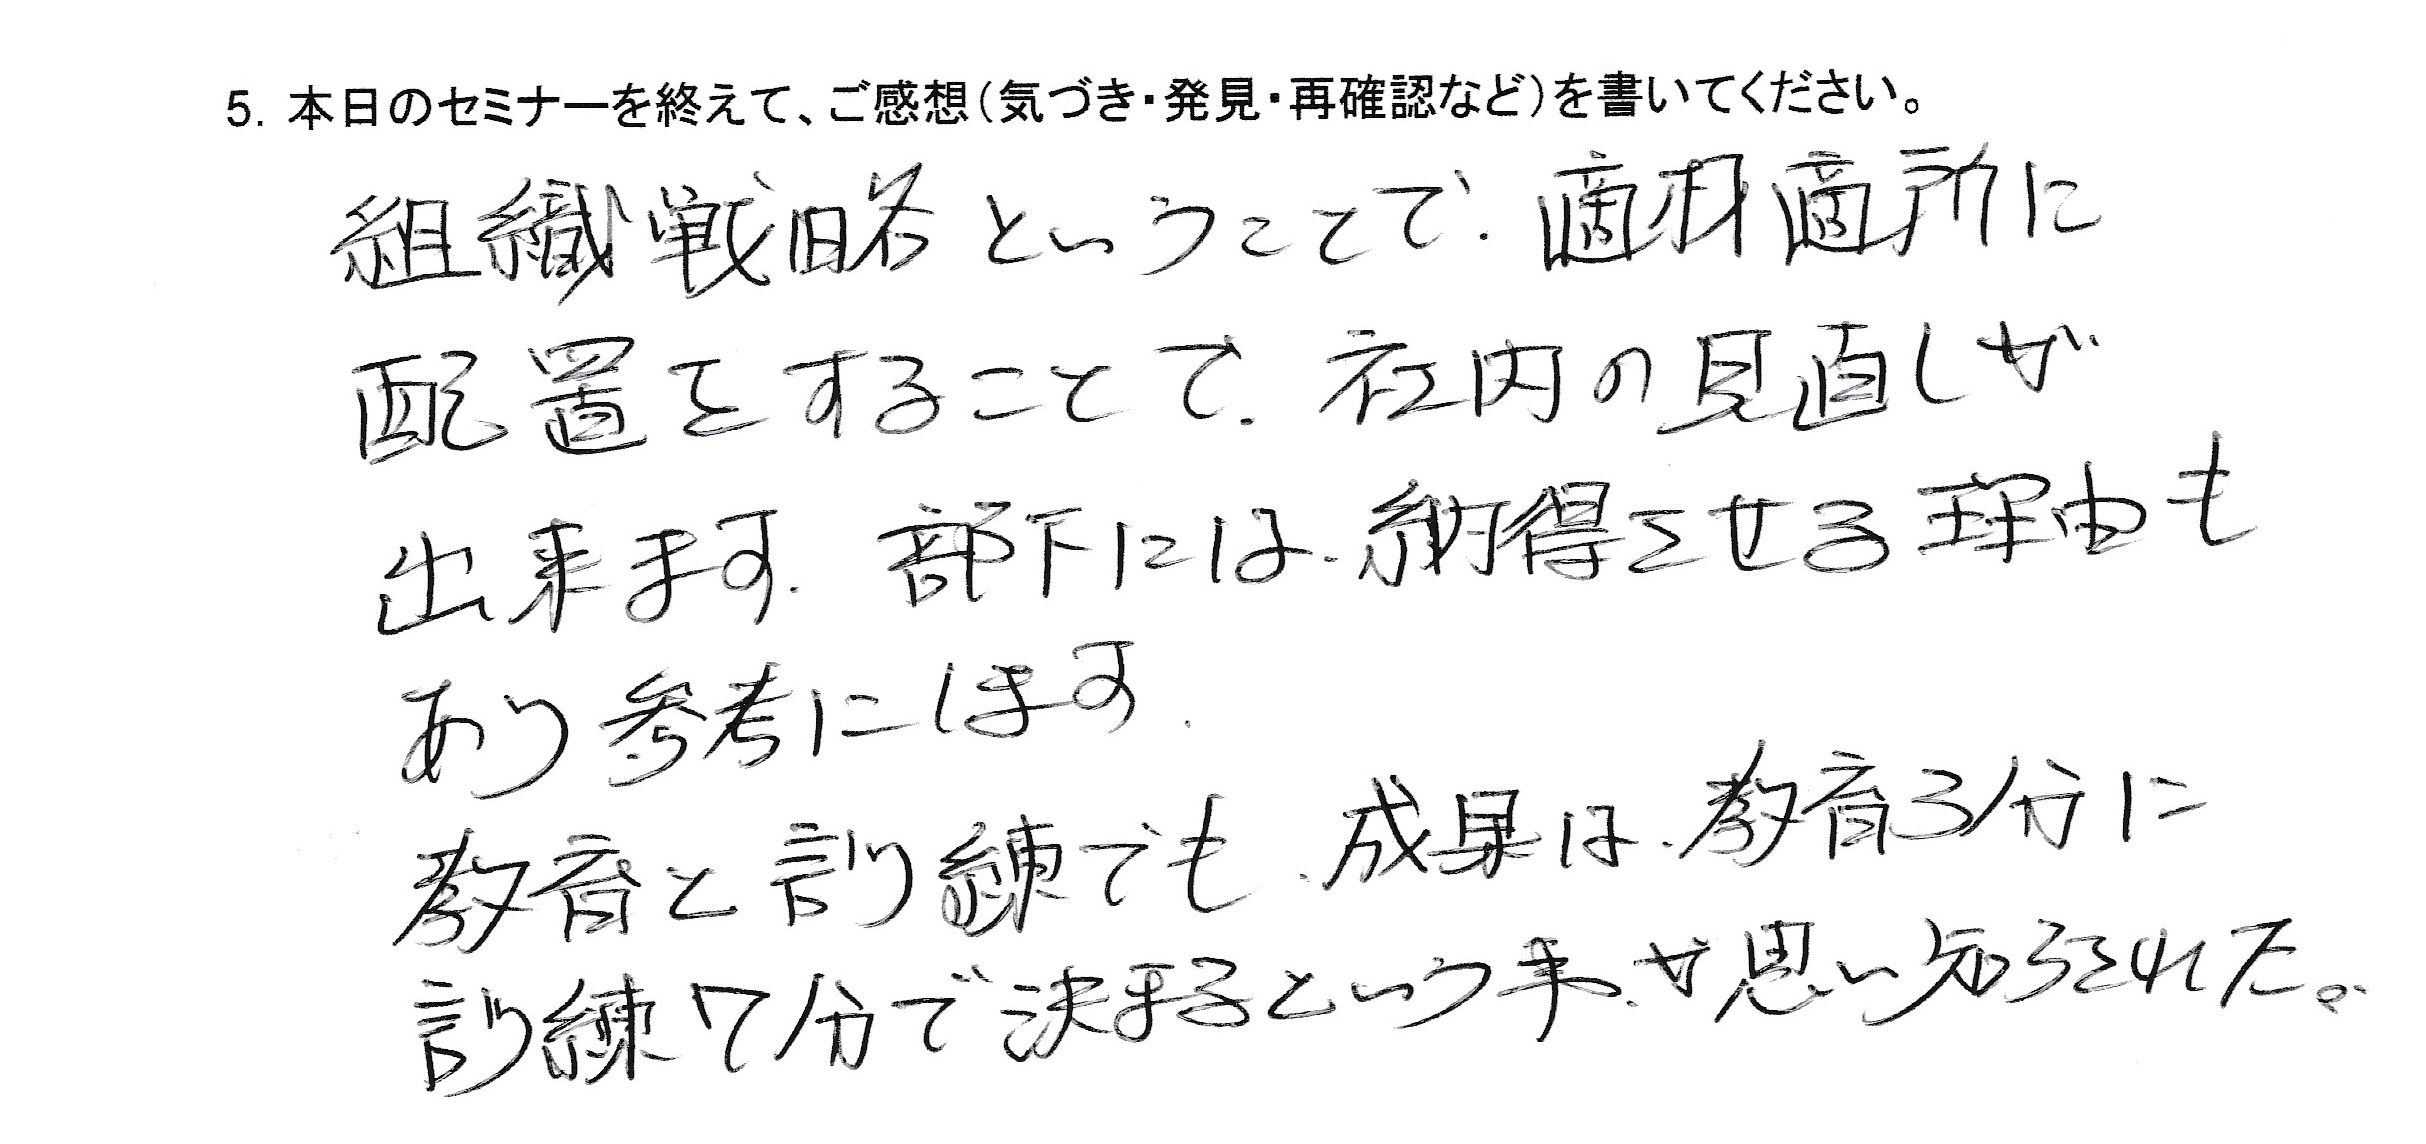 5. 本日のセミナーを終えて、ご感想(気づき・発見・再確認など)を書いてください。
組織戦略ということで、適材適所に
配置をすることで、社内の見直しが
出来ます。部下には、納得させる理由も
あり参考にします。
教育と訓練でも、成果は、教育3分に
訓練7分で決まるという事、が思い知らされた。